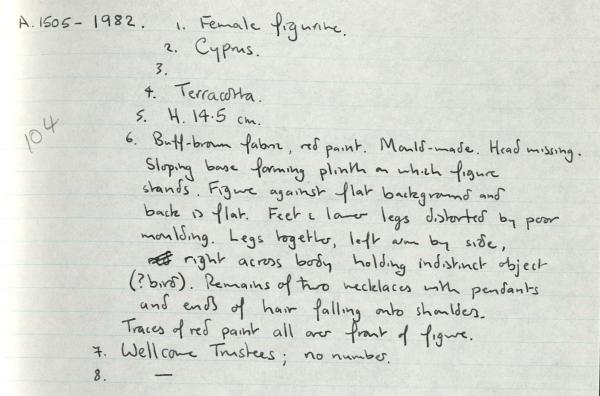 A.1505-1982. 1. Female figurine.
2. Cyprus.
3.
4. Terracotta.
5. H. 14.5 cm.
104
6. Buff-brown fabric, red paint. Mould-made. Head missing.
Sloping base forming plinth on which figure
stands. Figure against flat background and
back is flat. Feet & lower legs distorted by poor
moulding. Legs together, left arm by side,
right across body holding indistinct object
(?bird). Remains of two necklaces with pendants
and ends of hair falling onto shoulders.
Traces of red paint all over front of figure.
7. Wellcome Trustees; no number.
8. —